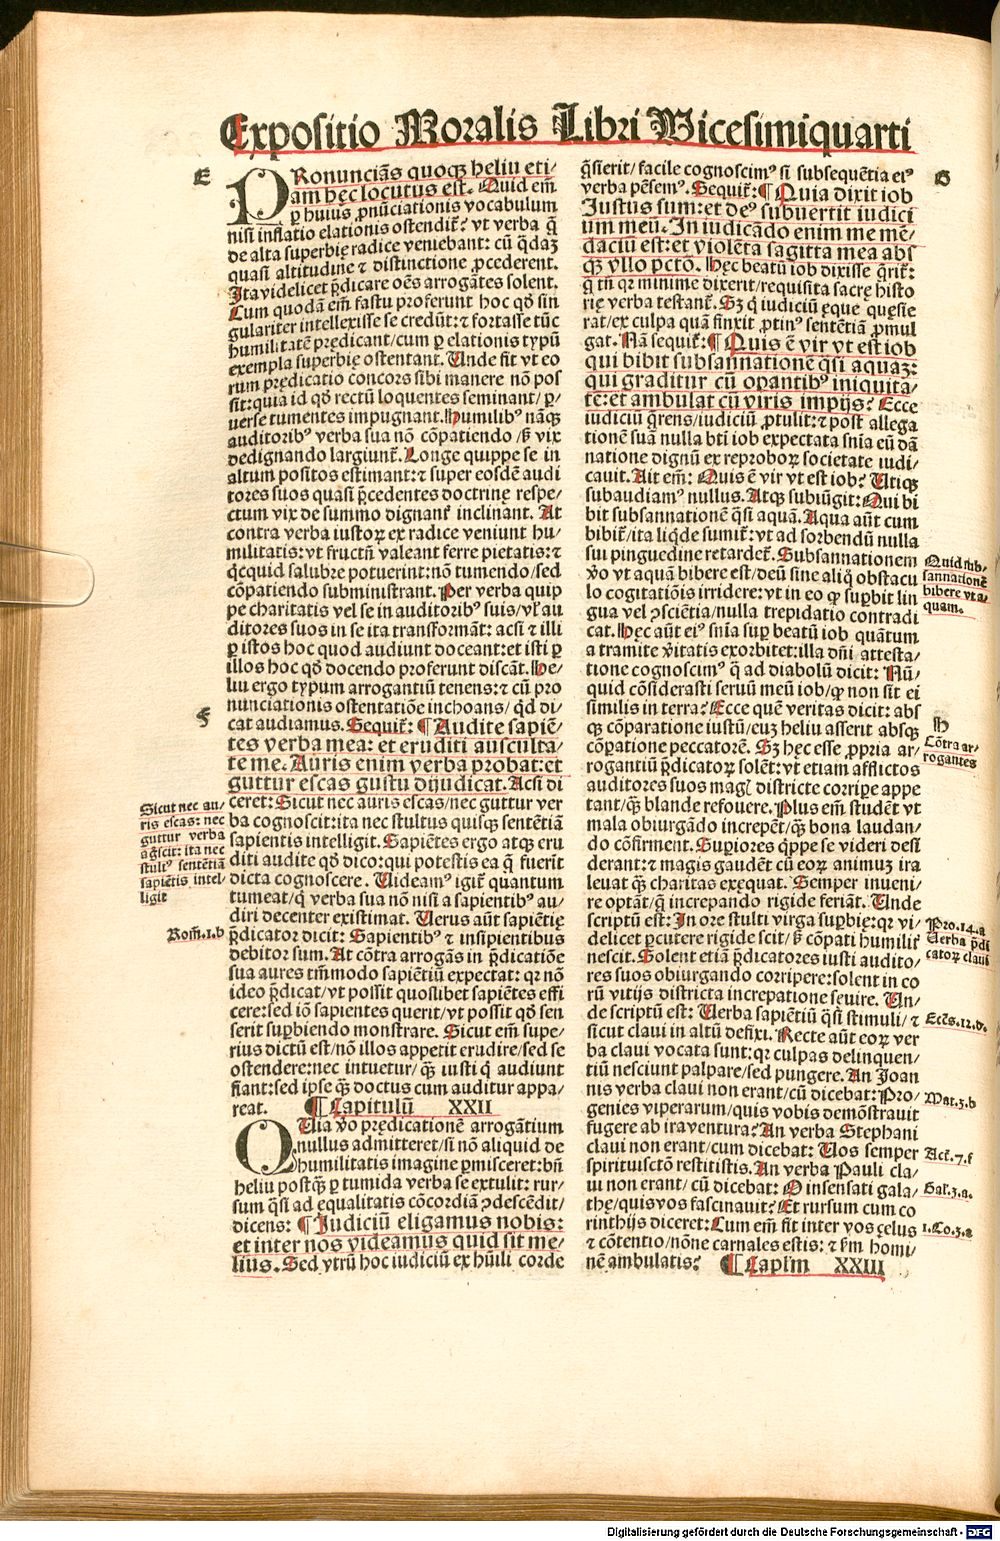 Expositio Moralis Libri Vicesimiquarti
E
PRonunciãs quoqꝫ heliu eti/
am hęc locutus est. Quid em̃
ꝑ huius ꝓnũciationis vocabulum
nisi inflatio elationis ostendit᷑? vt verba q̃
de alta superbię radice veniebant: cũ q̃daꝫ
quasi altitudine ⁊ distinctione ꝓcederent.
Ita videlicet p̃dicare oẽs arrogãtes solent.
Cum quodã em̃ fastu proferunt hoc qð sin
gulariter intellexisse se credũt: ⁊ fortasse tũc
humilitatẽ prędicant/ cum ꝑ elationis typũ
exempla superbię ostentant. Unde fit vt eo
rum prędicatio concors sibi manere nõ pos
sit: quia id qð rectũ loquentes seminant/ ꝑ/
uerse tumentes impugnant. Humilibꝰ nãqꝫ
auditoribꝰ verba sua nõ cõpatiendo /ß vix
dedignando largiunt᷑. Longe quippe se in
altum positos estimant: ⁊ super eosdẽ audi
tores suos quasi p̃cedentes doctrinę respe/
ctum vix de summo dignant᷑ inclinant. At
contra verba iustoꝝ ex radice veniunt hu/
militatis: vt fructũ valeant ferre pietatis: ⁊
q̃cquid salubre potuerint: nõ tumendo/ sed
cõpatiendo subministrant. Per verba quip
pe charitatis vel se in auditoribꝰ suis/ vł au
ditores suos in se ita transformãt: acsi ⁊ illi
ꝑ istos hoc quod audiunt doceant: et isti ꝑ
illos hoc qð docendo proferunt discãt. He/
liu ergo typum arrogantiũ tenens: ⁊ cũ pro
nunciationis ostentatiõe inchoans/ qð di/
F
cat audiamus. Sequit᷑: ¶ Audite sapiẽ/
tes verba mea: et eruditi ausculta/
te me. Auris enim verba probat: et
guttur escas gustu dijudicat. Acsi di
ceret: Sicut nec auris escas/ nec guttur ver
ba cognoscit: ita nec stultus quisqꝫ sentẽtiã
sapientis intelligit. Sapiẽtes ergo atqꝫ eru
diti audite qð dico: qui potestis ea q̃ fuerit
dicta cognoscere. Uideamꝰ igit᷑ quantum
tumeat/ q̃ verba sua nõ nisi a sapientibꝰ au/
diri decenter existimat. Uerus aũt sapiẽtię
p̃dicator dicit: Sapientibꝰ ⁊ insipientibus
debitor sum. At cõtra arrogãs in p̃dicatiõe
sua aures tm̃modo sapiẽtiũ expectat: qꝛ nõ
ideo p̃dicat/ vt possit quoslibet sapiẽtes effi
cere: sed iõ sapientes querit/ vt possit qð sen
serit suꝑbiendo monstrare. Sicut em̃ supe/
rius dictũ est/ nõ illos appetit erudire/ sed se
ostendere: nec intuetur/ q̃ꝫ iusti q̃ audiunt
fiant: sed ipse q̃ꝫ doctus cum auditur appa/
reat. ¶ Capitulũ XXII
QUia ṽo prędicationẽ arrogãtium
nullus admitteret/ si nõ aliquid de
humilitatis imagine ꝑmisceret: bñ
heliu postq̃ꝫ ꝑ tumida verba se extulit: rur/
sum q̃si ad equalitatis cõcordiã ꝯdescẽdit/
dicens: ¶ Iudiciũ eligamus nobis:
et inter nos videamus quid sit me/
lius. Sed vtrũ hoc iudiciũ ex hũili corde
Sicut nec au/
ris escas: nec
guttur verba
agscit: ita nec
stultꝰ sentẽtiã
sapiẽtis intel/
ligit
Rom̃.1.b
q̃sierit/ facile cognoscimꝰ si subsequẽtia eiꝰ
verba pẽsemꝰ. Sequit᷑: ¶ Quia dixit iob
Iustus sum: et deꝰ subuertit iudici
um meũ. In iudicãdo enim me mẽ/
daciũ est: et violẽta sagitta mea abs
qꝫ vllo pctõ. Hęc beatũ iob dixisse q̃rit᷑:
q̃ tñ qꝛ minime dixerit/ requisita sacrę histo
rię verba testant᷑. Sꝫ q̃ iudiciũ ęque quęsie
rat/ ex culpa quã finxit ꝓtinꝰ sentẽtiã ꝓmul
gat. Nã sequit᷑: ¶ Quis ẽ vir vt est iob
qui bibit subsannationẽ q̃si aquaꝫ:
qui graditur cũ opantibꝰ iniquita/
tẽ: et ambulat cũ viris impijs? Ecce
iudiciũ q̃rens/ iudiciũ ꝓtulit: ⁊ post allega
tionẽ suã nulla btĩ iob expectata snĩa eũ dã
natione dignũ ex reproboꝝ societate iudi/
cauit. Ait em̃: Quis ẽ vir vt est iob? Utiqꝫ
subaudiamꝰ nullus. Atqꝫ subiũgit: Qui bi
bit subsannationẽ q̃si aquã. Aqua aũt cum
bibit᷑/ ita liq̃de sumit᷑: vt ad sorbendũ nulla
sui pinguedine retardet᷑. Subsannationem
ṽo vt aquã bibere est/ deũ sine aliq̃ obstacu
lo cogitatiõis irridere: vt in eo ꝙ suꝑbit lin
gua vel ꝯsciẽtia/ nulla trepidatio contradi
cat. Hęc aũt eiꝰ snĩa suꝑ beatũ iob quãtum
a tramite ṽitatis exorbitet: illa dñi attesta/
tione cognoscimꝰ q̃ ad diabolũ dicit: Nũ/
quid cõsiderasti seruũ meũ iob/ ꝙ non sit ei
similis in terra? Ecce quẽ veritas dicit: abs
qꝫ cõparatione iustũ/ euꝫ heliu asserit absqꝫ
cõꝑatione peccatorẽ. Sꝫ hęc esse ꝓpria ar/
rogantiũ p̃dicatoꝝ solẽt: vt etiam afflictos
auditores suos magĩ districte corriꝑe appe
tant/ q̃ꝫ blande refouere. Plus em̃ studẽt vt
mala obiurgãdo increpẽt/ q̃ꝫ bona laudan/
do cõfirment. Suꝑiores q̃ppe se videri desi
derant: ⁊ magis gaudẽt cũ eoꝝ animuꝫ ira
leuat q̃ꝫ charitas exęquat. Semper inueni/
re optãt/ q̃ increpando rigide feriãt. Unde
scriptũ est: In ore stulti virga suꝑbię: qꝛ vi/
delicet ꝑcutere rigide scit/ ß cõpati humiliť
nescit. Solent etiã p̃dicatores iusti audito/
res suos obiurgando corripere: solent in eo
rũ vitijs districta increpatione seuire. Un/
de scriptũ est: Uerba sapiẽtiũ q̃si stimuli/ ⁊
sicut claui in altũ defixi. Recte aũt eoꝝ ver
ba claui vocata sunt: qꝛ culpas delinquen/
tiũ nesciunt palpare/ sed pungere. An Ioan
nis verba claui non erant/ cũ dicebat: Pro/
genies viperarum/ quis vobis demõstrauit
fugere ab ira ventura? An verba Stephani
claui non erant/ cum dicebat: Uos semper
spirituisctõ restitistis. An verba Pauli cla/
ui non erant/ cũ dicebat: O insensati gala/
thę/ quis vos fascinauit? Et rursum cum co
rinthijs diceret: Cum em̃ sit inter vos çelus
⁊ cõtentio/ nõne carnales estis: ⁊ ẜm homi/
nẽ ambulatis? ¶ Caplm̃ XXIII
G
Quid sub/
sannationẽ
bibere vt a/
quam.
H
Cõtra ar/
rogantes
Pro.14.a
Uerba p̃di
catoꝝ claui
Eccs̃.12.d.
Mat.3.b
Act᷑.7.f
Gal̃.3.a.
1.Co.3.a
Digitalisierung gefördert durch die Deutsche Forschungsgemeinschaft - DFG